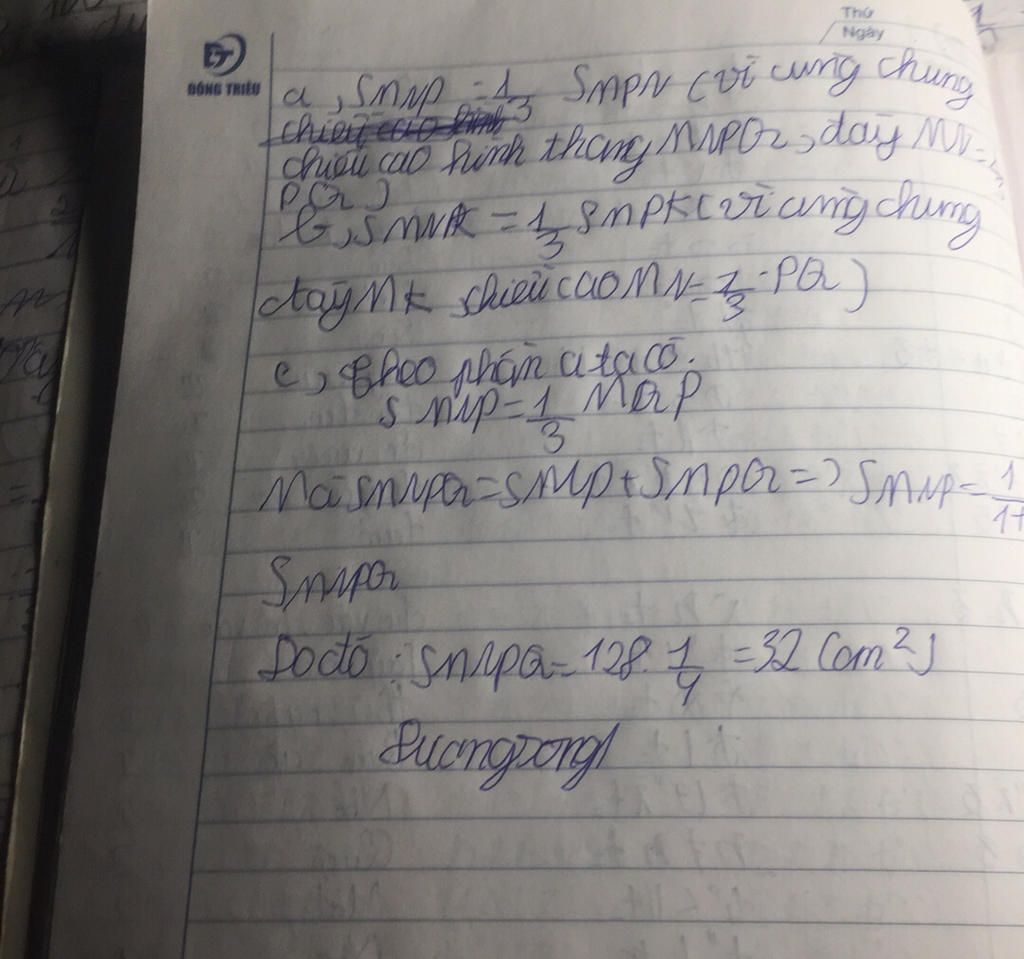 Thứ
Ngày
ĐT
ĐÔNG TRIỀU
a, SMNP = 1/3 SMPN (vì cùng chung
chiều cao hình
chiều cao hình thang MNPQ, đáy MN =
PQ)
b, SMNK = 1/3 SMPK (vì cùng chung
đáy MK chiều cao MN = 1/3 . PQ)
c, theo phần a ta có.
SMNP = 1/3 MQP
Mà SMNPQ = SMNP + SMPQ => SMNP = 1/1+
SMNPQ
Do đó : SMNPQ = 128 . 1/4 = 32 (cm2)